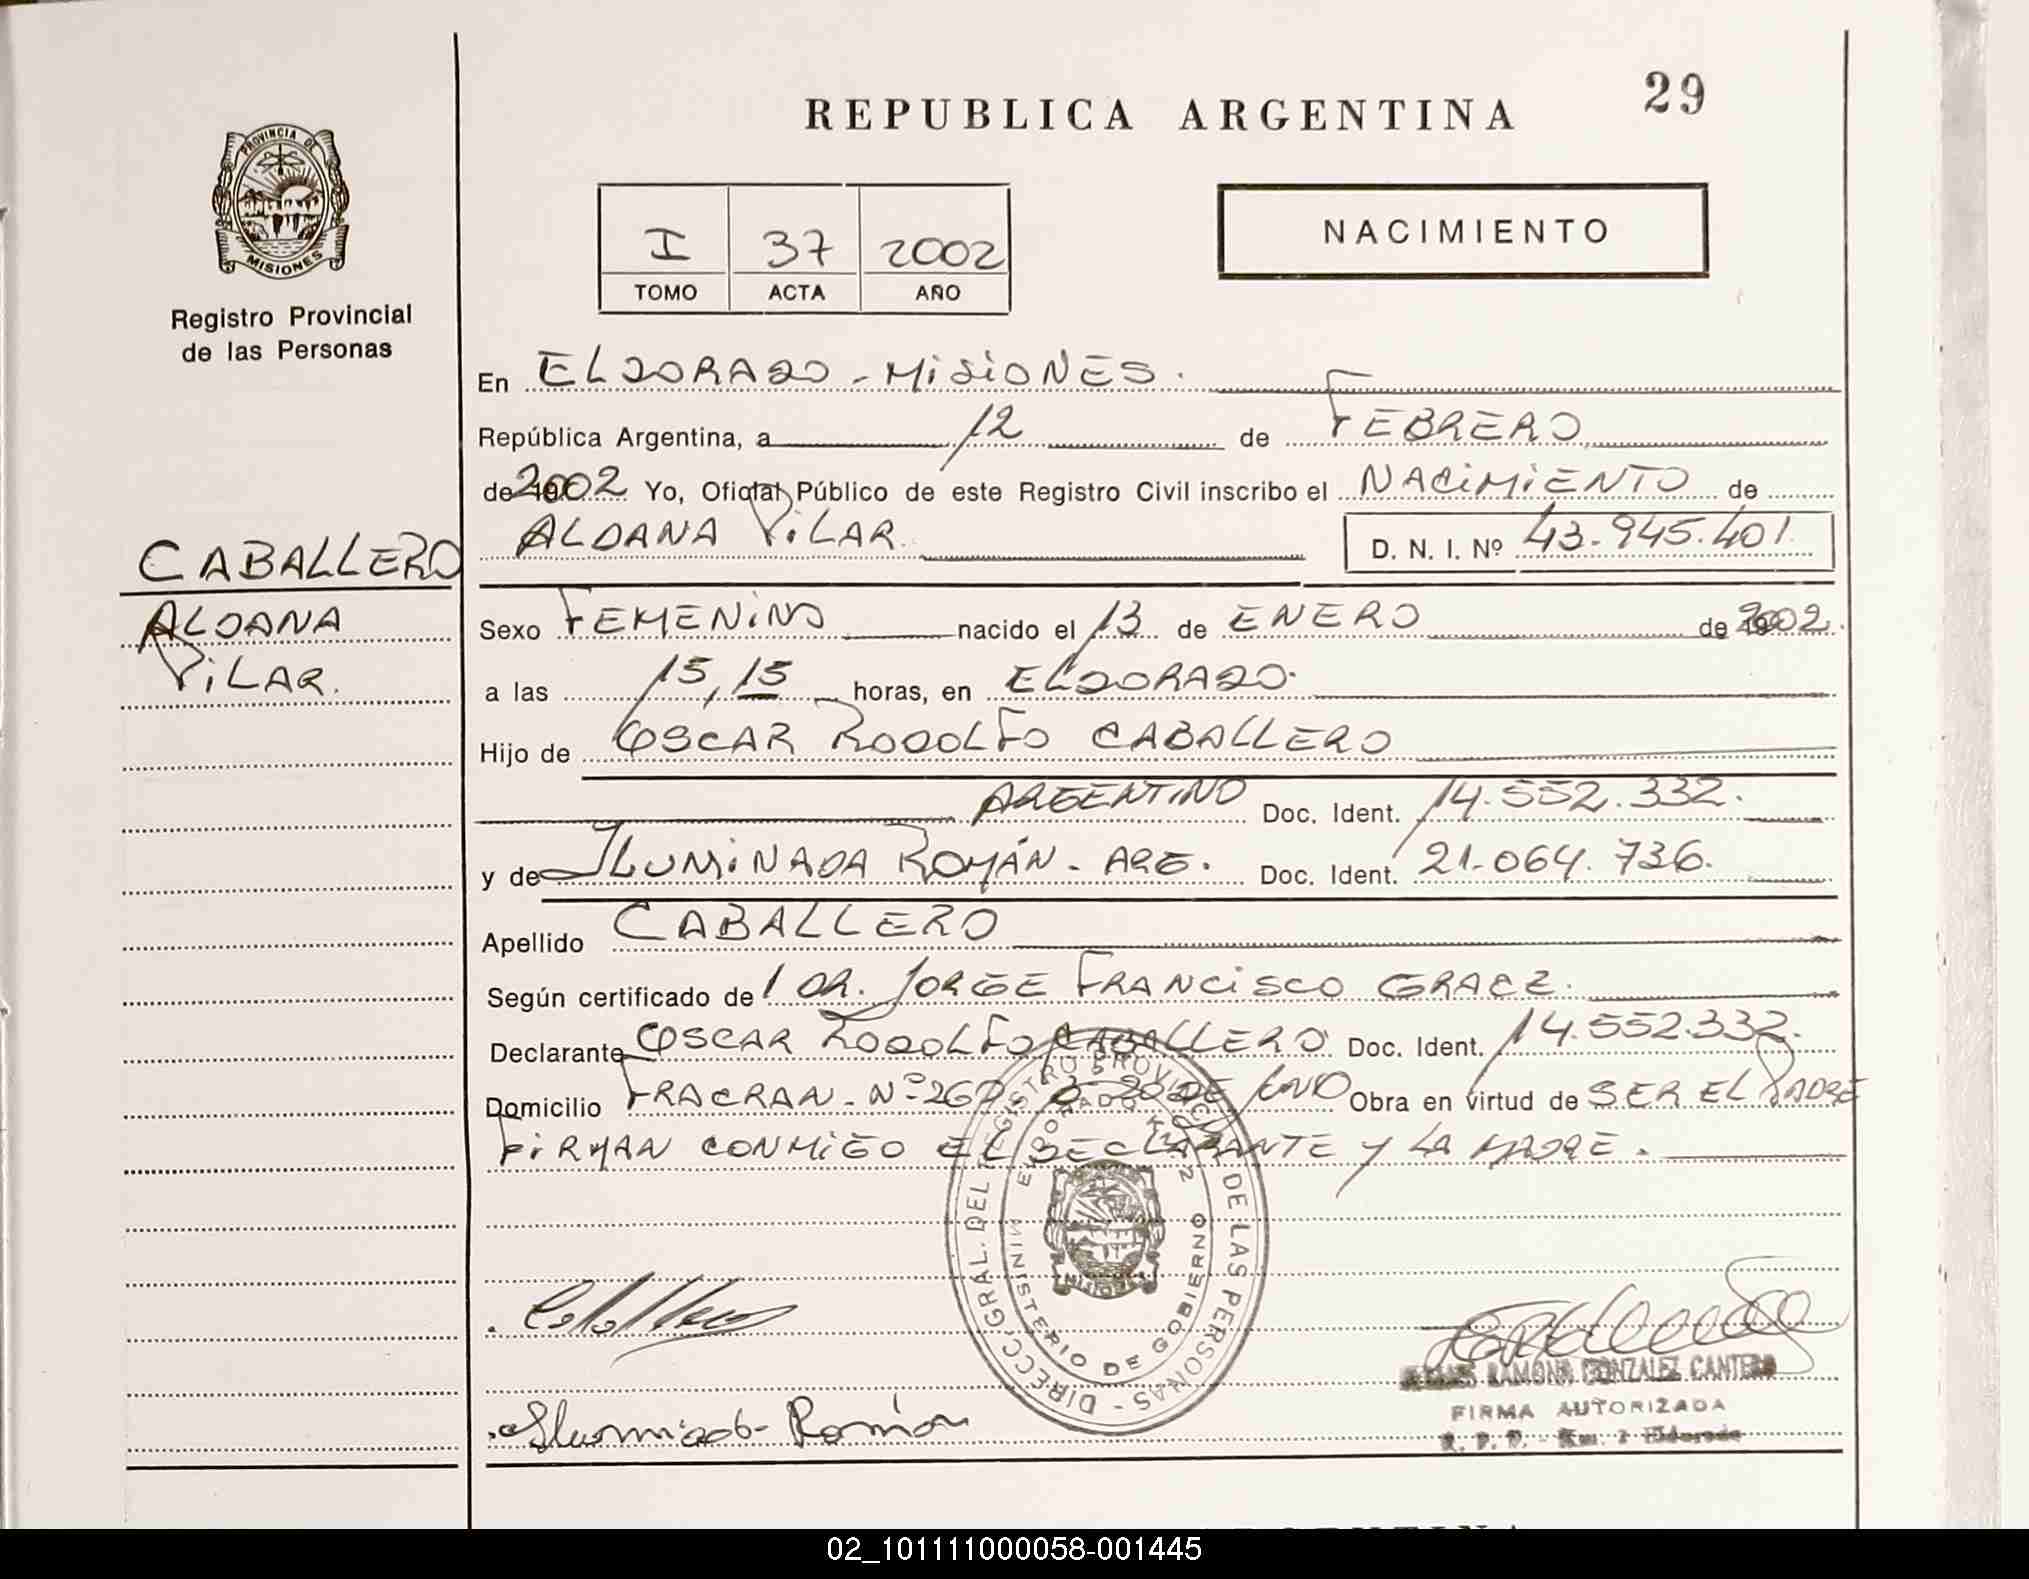 REPUBLICA ARGENTINA
29
PROVINCIA DE
MISIONES
Registro Provincial
de las Personas
I 37 2002
TOMO ACTA AÑO
NACIMIENTO
En ELDORADO - MISIONES.
República Argentina, a 12 de FEBRERO
de 2002 Yo, Oficial Público de este Registro Civil inscribo el NACIMIENTO de
ALDANA PILAR. D. N. I. Nº 43.945.401
CABALLERO
ALDANA
PILAR.
Sexo FEMENINO nacido el 13 de ENERO de 2002.
a las 15,15 horas, en ELDORADO.
Hijo de OSCAR RODOLFO CABALLERO
ARGENTINO Doc. Ident. 14.552.332.
y de ILUMINADA ROMÁN - ARG. Doc. Ident. 21.064.736.
Apellido CABALLERO
Según certificado de DR. JORGE FRANCISCO
Declarante OSCAR RODOLFO CABALLERO Doc. Ident. 14.552.332.
Domicilio FRACRAN - Nº 260 Bº 20 DE JUNIO Obra en virtud de SER EL PADRE
FIRMAN CONMIGO EL DECLARANTE Y LA MADRE.
DIRECC. GRAL. DEL REGISTRO PROVINCIAL DE LAS PERSONAS -
ELDORADO KM 2
MINISTERIO DE GOBIERNO
MISIONES
Caballero
Iluminada Román
RAMONA GONZALEZ CANTERO
FIRMA AUTORIZADA
R. P. P. - Km. 2 Eldorado
02_101111000058-001445